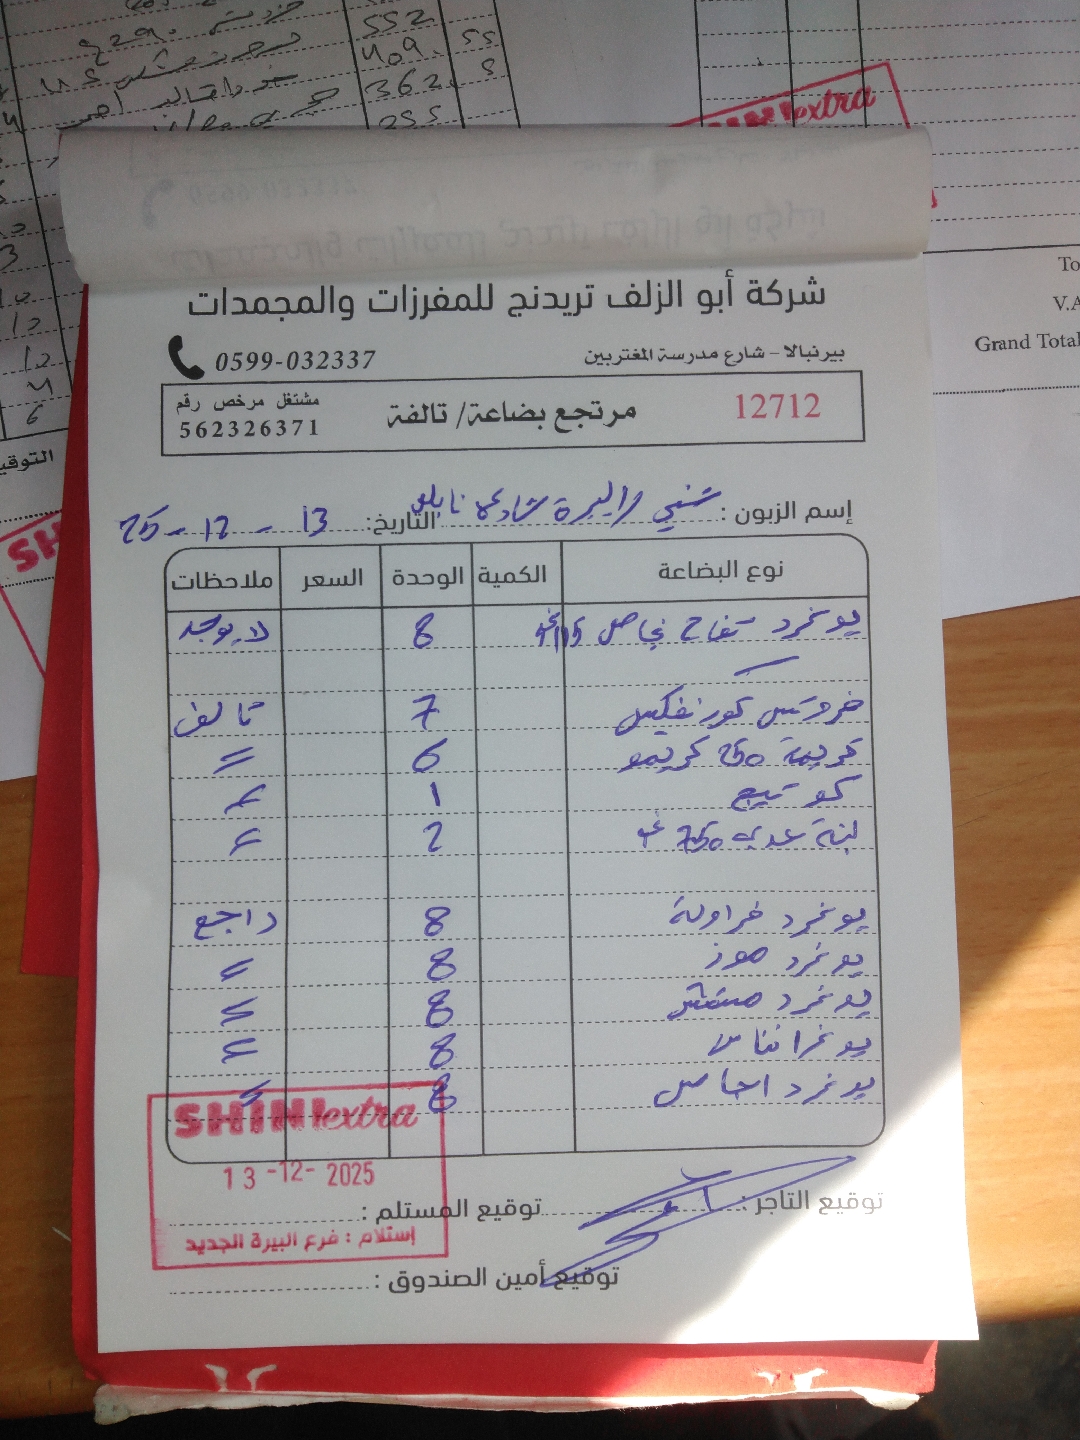 552
409.
55
362.
5
255
SHINIextra
شركة أبو الزلف تريدنج للمفرزات والمجمدات
0599-032337
بيرنبالا - شارع مدرسة المغتربين
مشتغل مرخص رقم
562326371
مرتجع بضاعة/ تالفة
12712
To
V.A
Grand Total
التوقيع
إسم الزبون : شني البيرة شارع نابلس
التاريخ: 13 - 12 - 25
نوع البضاعة الكمية الوحدة السعر ملاحظات
يوغرد تفاح نجاص 115غم 8 لا يوجد
خروتس كورنفلكس 7 تالف
كريمة 250 كريمو 6 =
كوتيج 1 =
لبنة عدي 750 غم 2 =
يوغرد فراولة 8 راجع
يوغرد موز 8 =
يوغرد مشمش 8 =
يوغر اناناس 8 =
يوغرد اجاص 8 =
SHINIextra
13-12-2025
توقيع التاجر :
توقيع المستلم :
إستلام : فرع البيرة الجديد
توقيع أمين الصندوق :